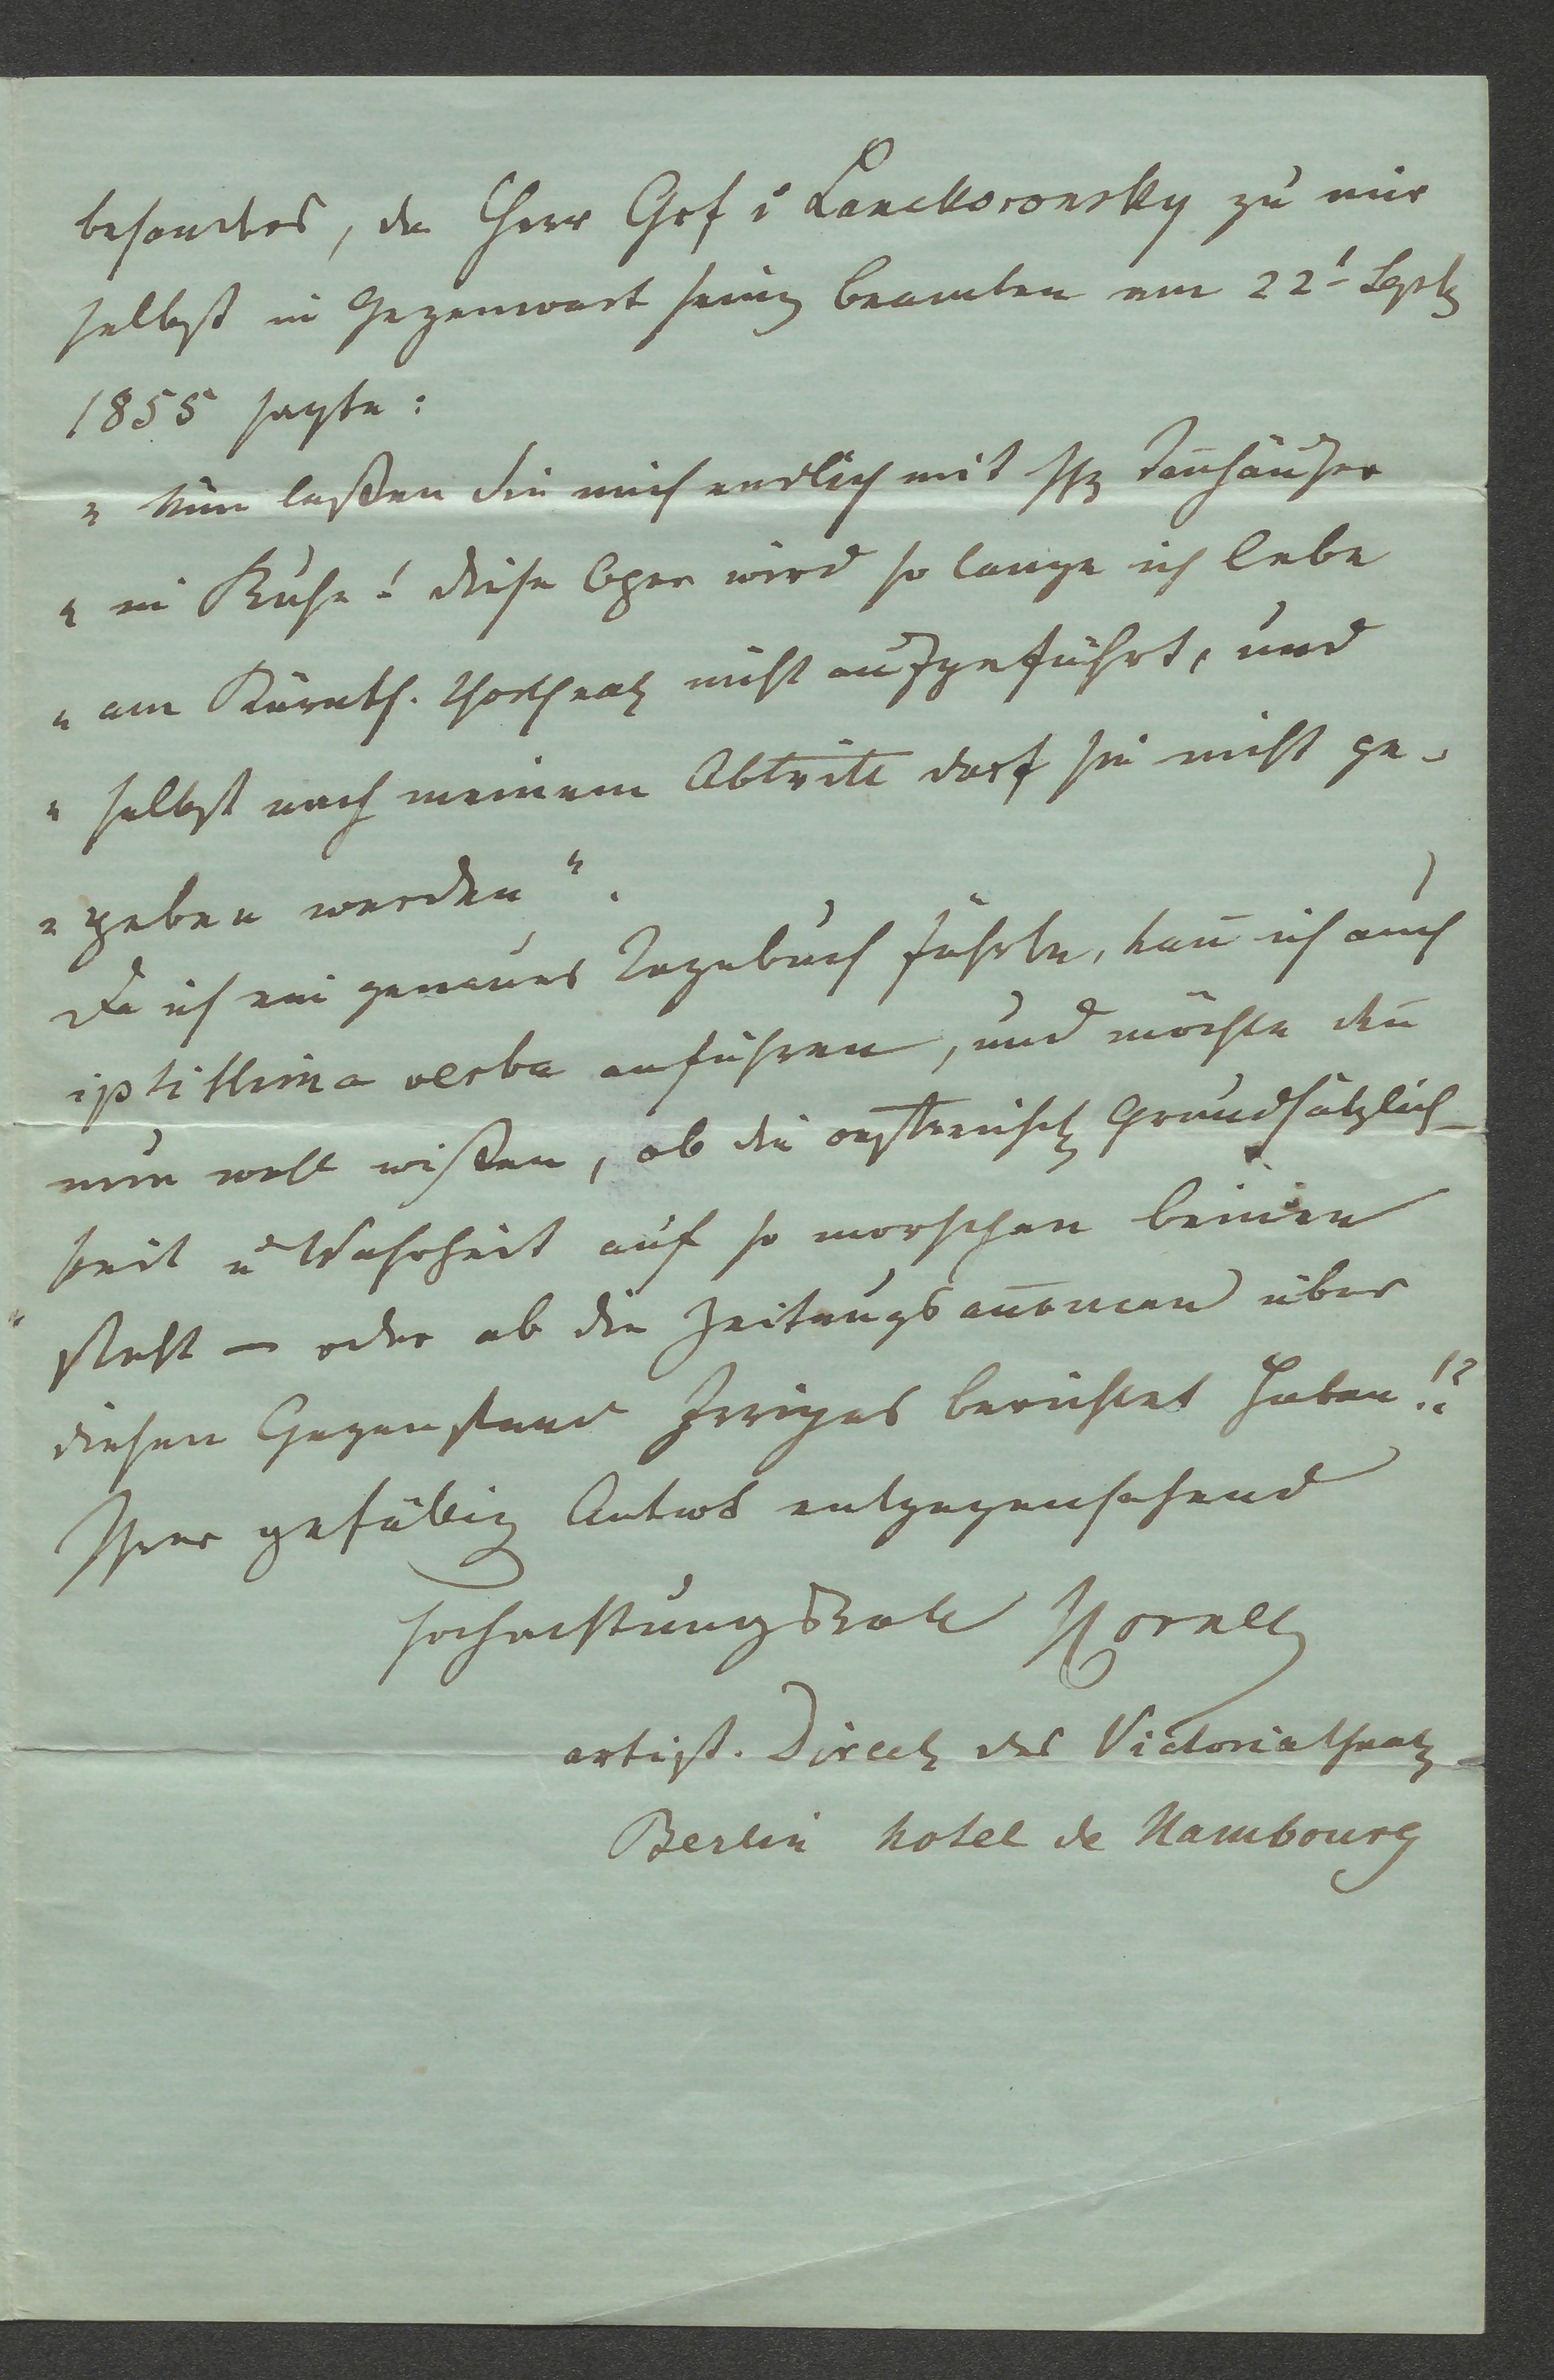 besonders, da Herr Grf i Lanckoronsky zu mir
selbst in Gegenwart seiner Beamten am 22t Septr
1855 sagte:
„ Nun laßen Sie mich endlich mit Ihr Tan̄häuser
„ in Ruhe! diese Oper wird so lange ich lebe
„ am Kärnth. Thortheater nicht aufgeführt, und
„ selbst nach meinem Abtritt darf sie nicht ge-
„ geben werden“.
Da ich ein genaues Tagebuch führte, kan̄ ich auch
ipsissima verba anführen, und möchte den̄
nun woll wißen, ob die oestreichische Grundsätzlich-
keit u Wahrheit auf so morschen Beinen
steht — oder ob die Zeitungsan̄oncen über
diesen Gegenstand Irriges berichtet haben!?
Ihrer gefälligen Antwort entgegensehend
hochachtungsvoll Cornet
artist. Director des Victoriatheater
Berlin hotel de Hambourg